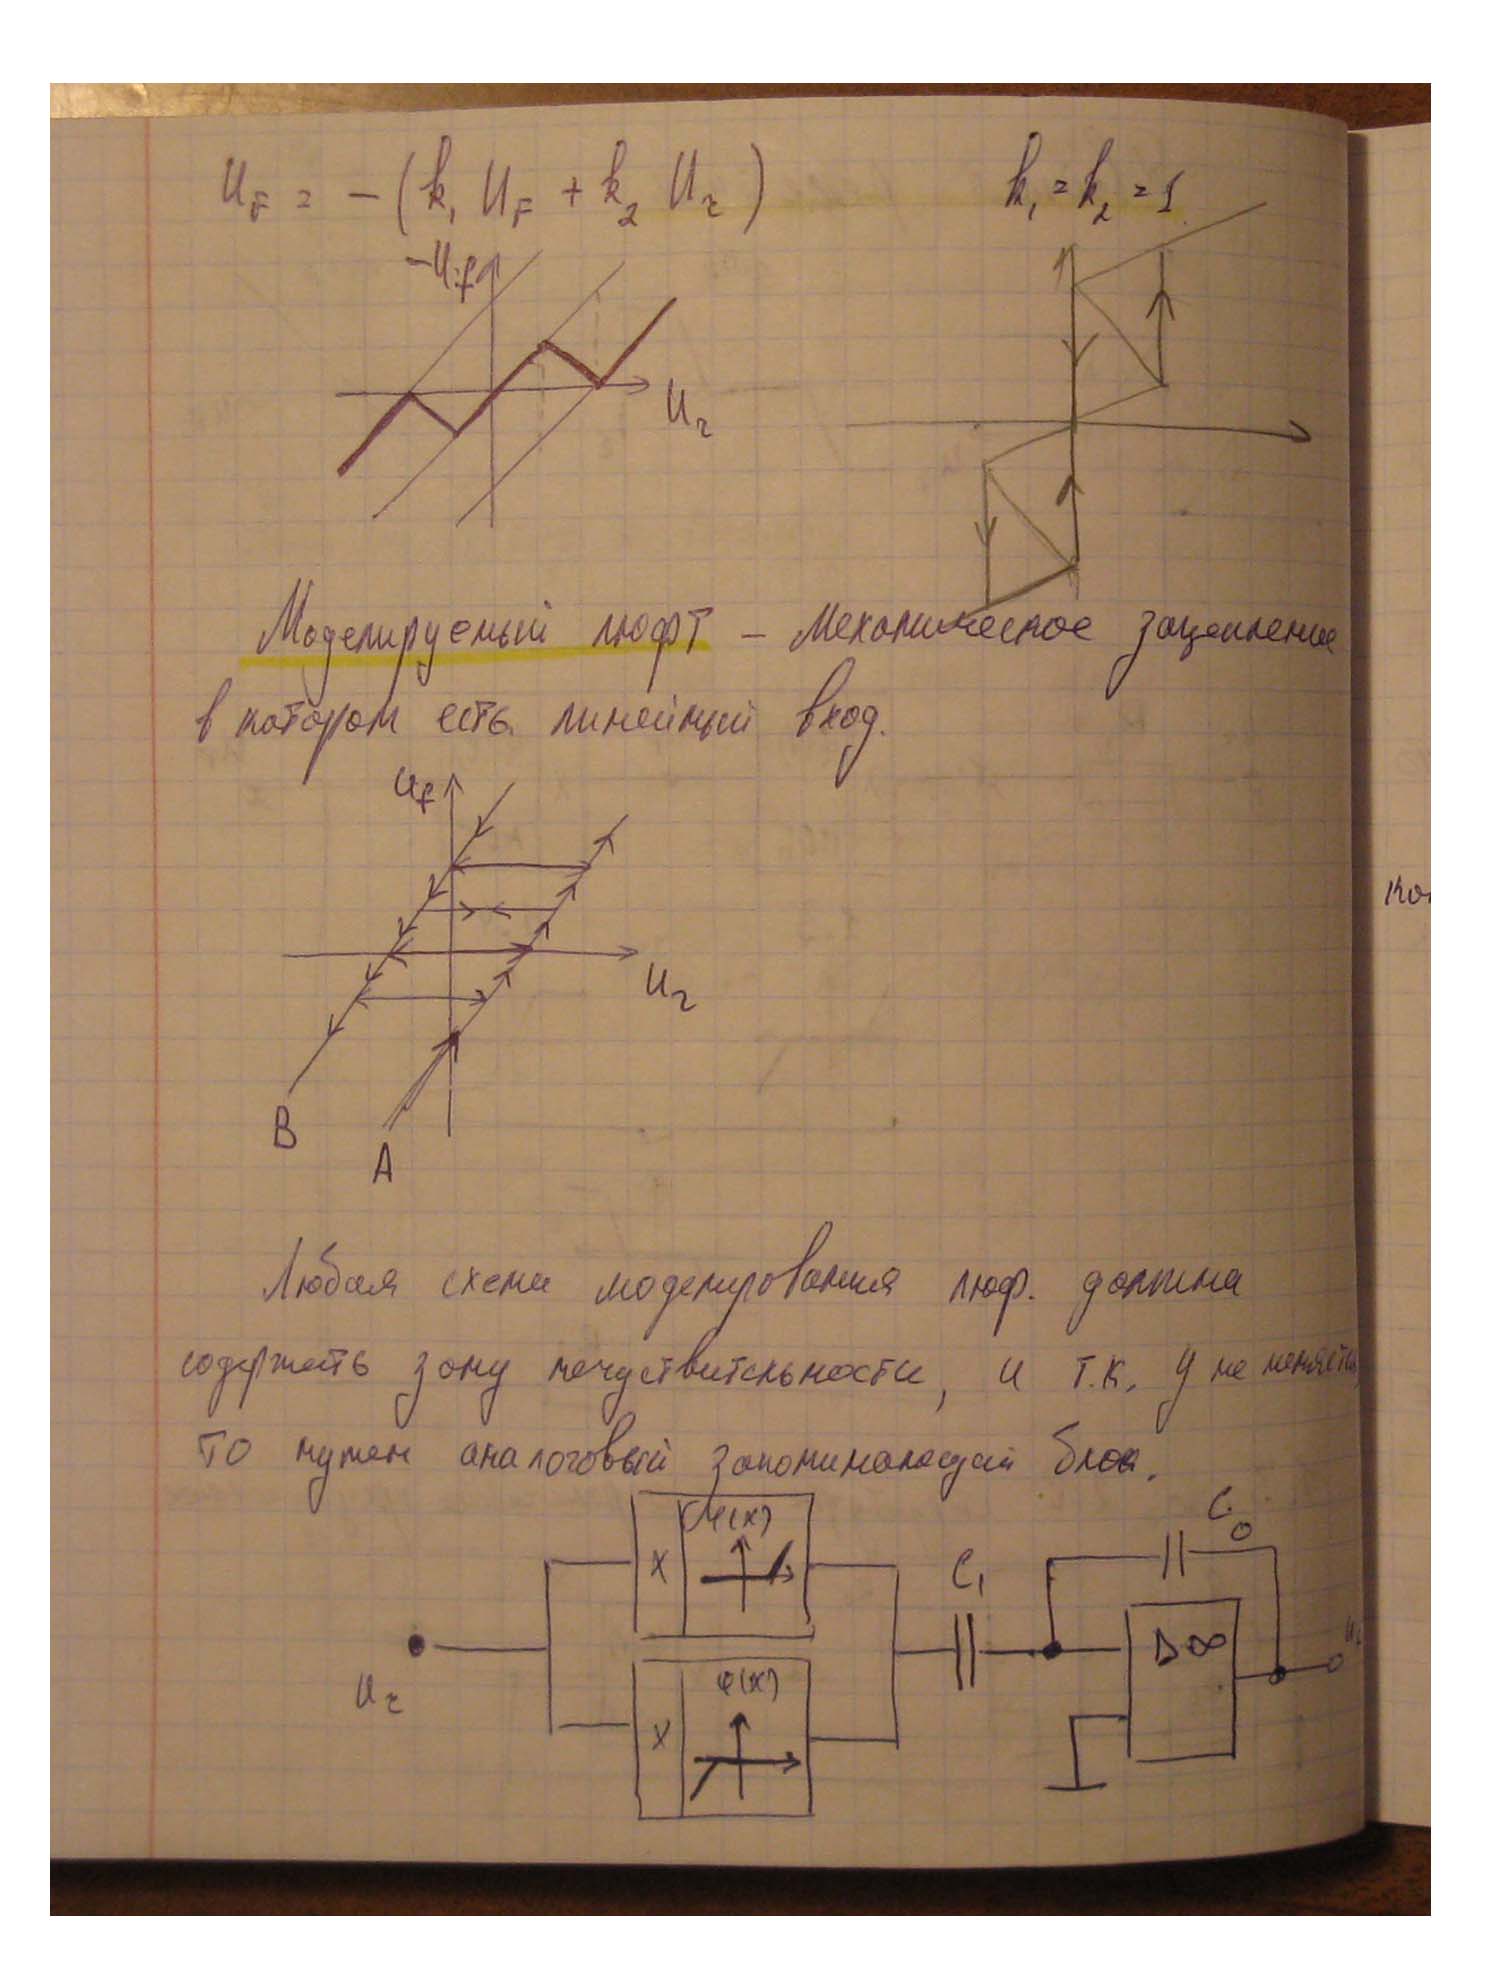 U_F = -(k_1 U_F + k_2 U_r) k_1 = k_2 = 1
-U_f
U_r
Моделируемый люфт - механическое зацепление
в котором есть линейный вход.
U_f
U_r
B
A
Любая схема моделирования люф. должна
содержать зону нечуствительности, и т.к. у не меняется,
то нужен аналоговый запоминающий блок.
C_0
X φ(x)
C_1
▷ ∞
U_r
X φ(x)